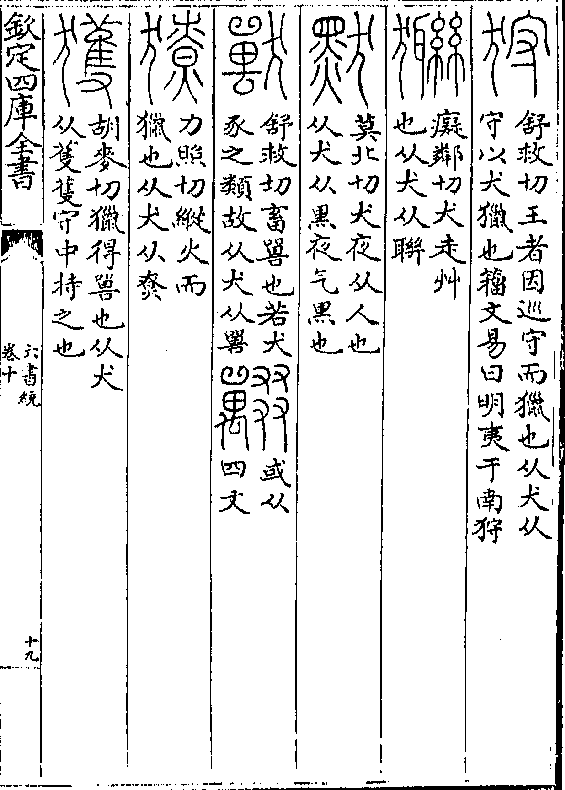 狩
舒救切王者因巡守而獵也从犬从
守以犬獵也籒文易曰明夷于南狩
癡鄰切犬走艸
也从犬从聯
默
莫北切犬夜从人也
从犬从黒夜气黒也
獸
舒救切畜嘼也若犬
豕之類故从犬从嘼
或从
四又
獠
力照切縱火而
獵也从犬从尞
獲
胡麥切獵得嘼也从犬
从蒦蒦守中持之也
欽定四庫全書
六書統
卷十
十九